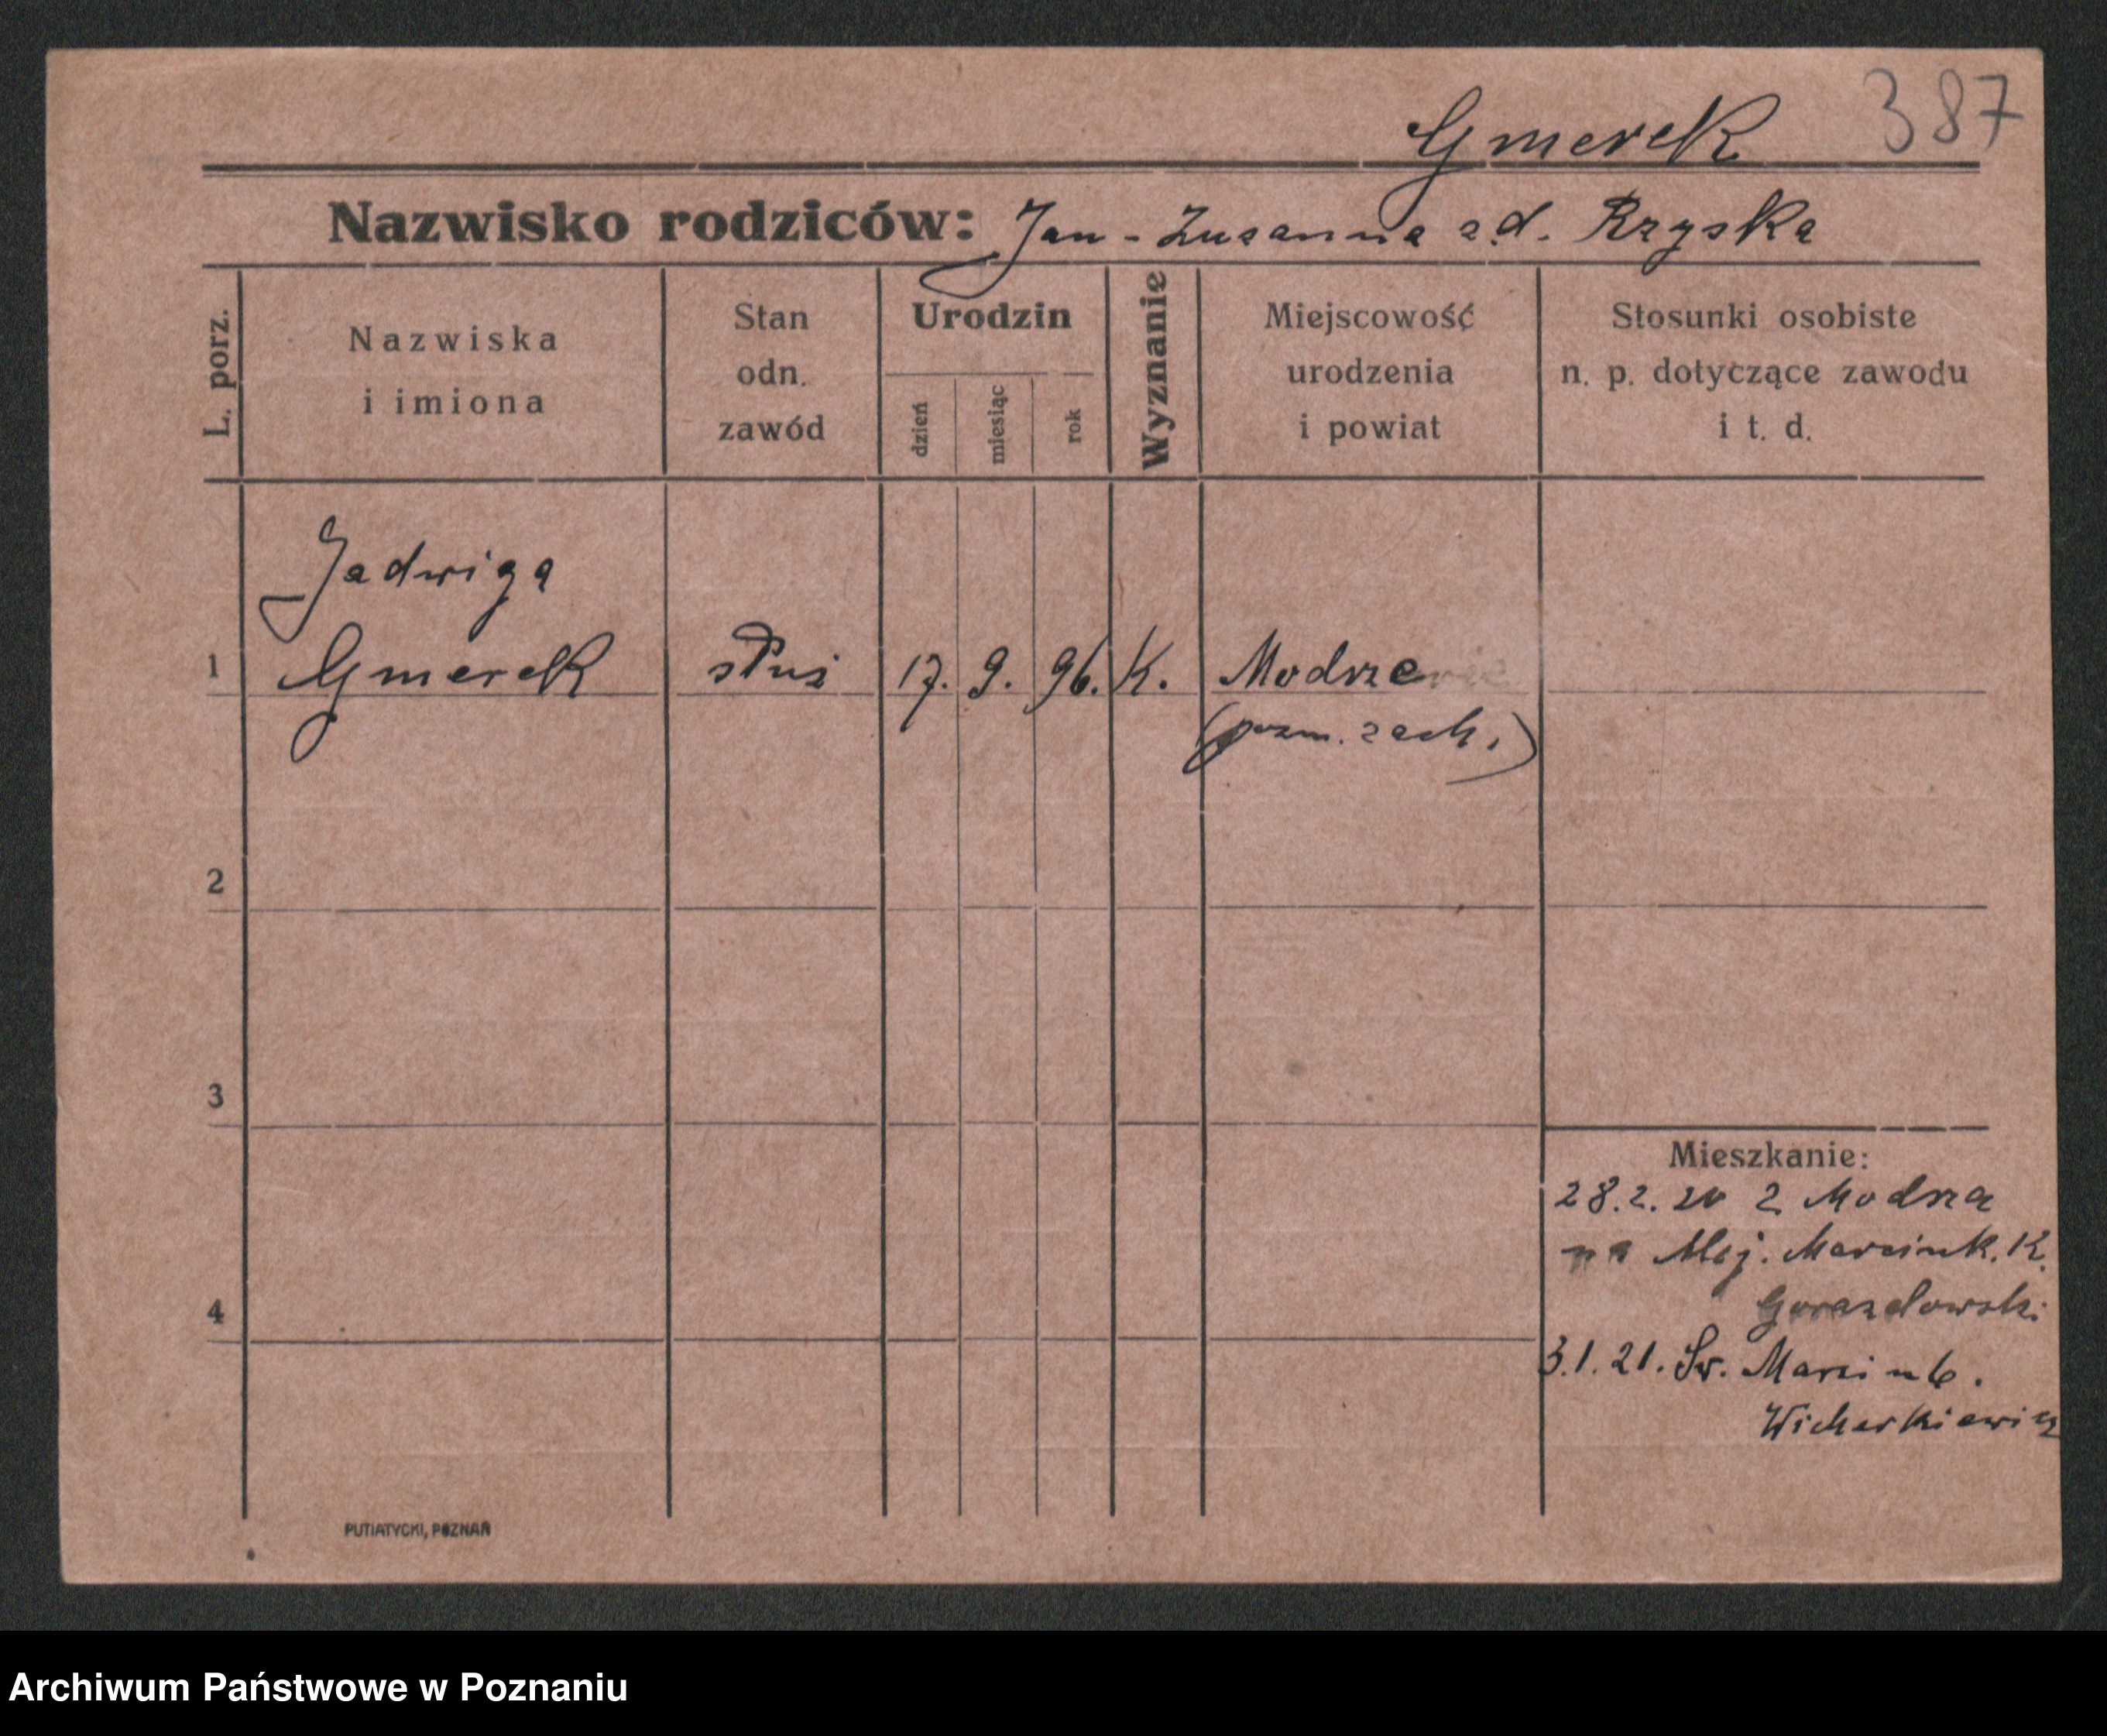 387
Gmerek
Nazwisko rodziców: Jan - Zusanna z d. Rzyska
L. porz.
Nazwiska
i imiona
Stan
odn.
zawód
Urodzin
dzień
miesiąc
rok
Wyznanie
Miejscowość
urodzenia
i powiat
Stosunki osobiste
n. p. dotyczące zawodu
i t. d.
Jadwiga
1 Gmerek służ 17. 9. 96. K. Modrze
(pozn. zach.)
2
3
4
Mieszkanie:
28.2.20 z Modrza
na Alej. Marcink. 12.
Gorazdowski
3.1.21. Św. Marcin 6.
Wicherkiewicz
PUTIATYCKI, POZNAŃ
Archiwum Państwowe w Poznaniu